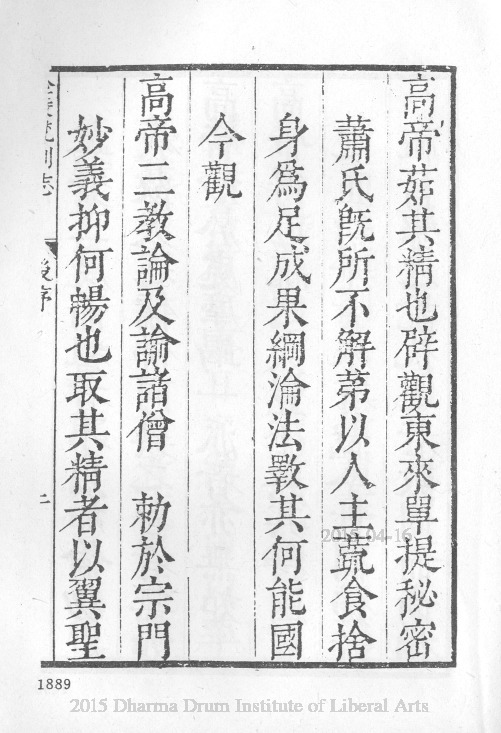 高帝茹其精也辟觀東來單提秘密
蕭氏既所不解苐以人主蔬食捨
身為足成果綱淪法斁其何能國
今觀
高帝三教論及諭諸僧 勅於宗門
妙義抑何暢也取其精者以翼聖
梵剎志 後序 二
2015-04-16
1889
2015 Dharma Drum Institute of Liberal Arts